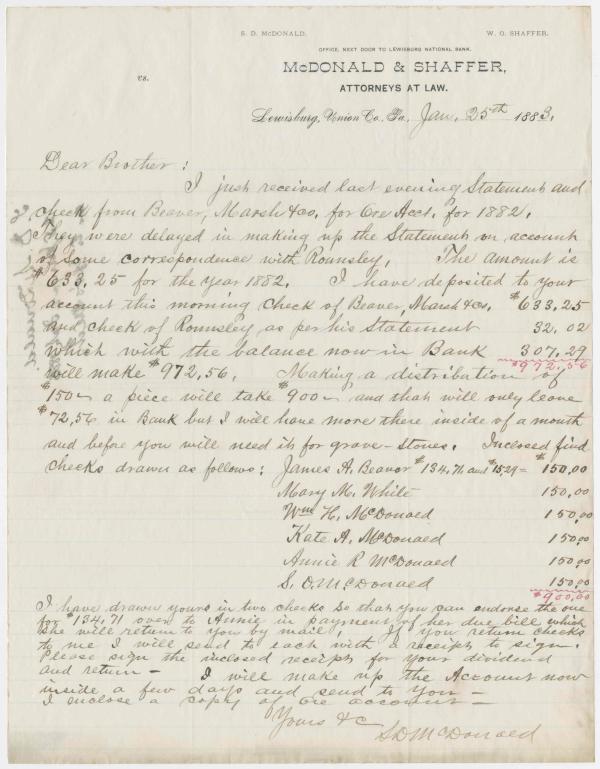 S. D. McDONALD. W. O. SHAFFER.
OFFICE, NEXT DOOR TO LEWISBURG NATIONAL BANK.
McDONALD & SHAFFER,
vs.
ATTORNEYS AT LAW.
Lewisburg, Union Co., Pa., Jan. 25th 1883.
Dear Brother:
I just received last evening Statement and
check from Beaver, Marsh &co. for Ore Acct. for 1882.
They were delayed in making up the Statement on account
of some correspondence with Rounsley. The amount is
$633.25 for the year 1882. I have deposited to your
account this morning check of Beaver, Marsh &co. $633.25
and check of Rounsley as per his Statement 32.02
which with the balance now in Bank 307.29
$972.56
will make $972,56. Making a distribution of
$150 a piece will take $900 and that will only leave
$72,56 in Bank but I will have more there inside of a month
and before you will need it for grave-stones. Inclosed find
checks drawn as follows: James A. Beaver $134.71 and $15.29 = $150.00
Mary M. White 150.00
Wm H. McDonald 150.00
Kate A. McDonald 150.00
Annie R McDonald 150.00
S. D. McDonald 150.00
$900.00
I have drawn yours in two checks so that you can endorse the one
for $134.71 over to Annie in payment of her due bill which
she will return to you by mail. If you return checks
to me I will send to each with a receipt to sign.
Please sign the inclosed receipt for your dividend
and return — I will make up the Account now
inside a few days and send to you —
I enclose a copy of ore account —
Yours &c
S D McDonald